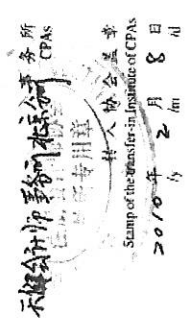 天健会计师事务所北京分所
事务所
CPAs
转入协会盖章
Stamp of the transfer-in Institute of CPAs
2010年2月8日
/y /m /d